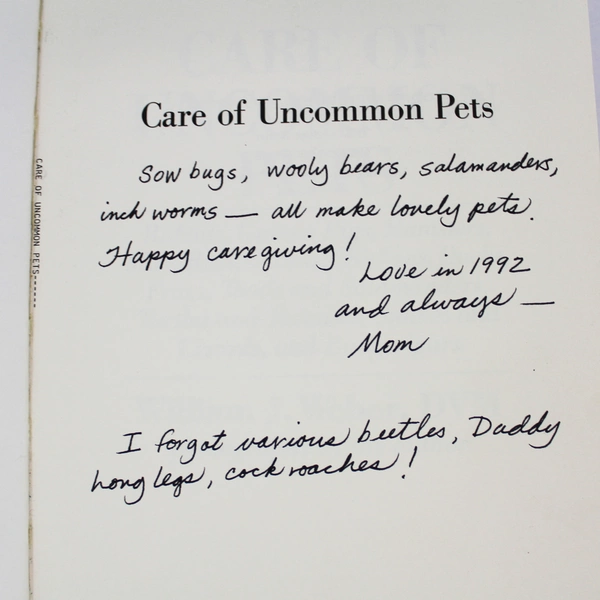 Care of Uncommon Pets
Sow bugs, wooly bears, salamanders,
inch worms — all make lovely pets.
Happy care giving!
Love in 1992
and always —
Mom
I forgot various beetles, Daddy
long legs, cock roaches!
CARE OF UNCOMMON PETS-------